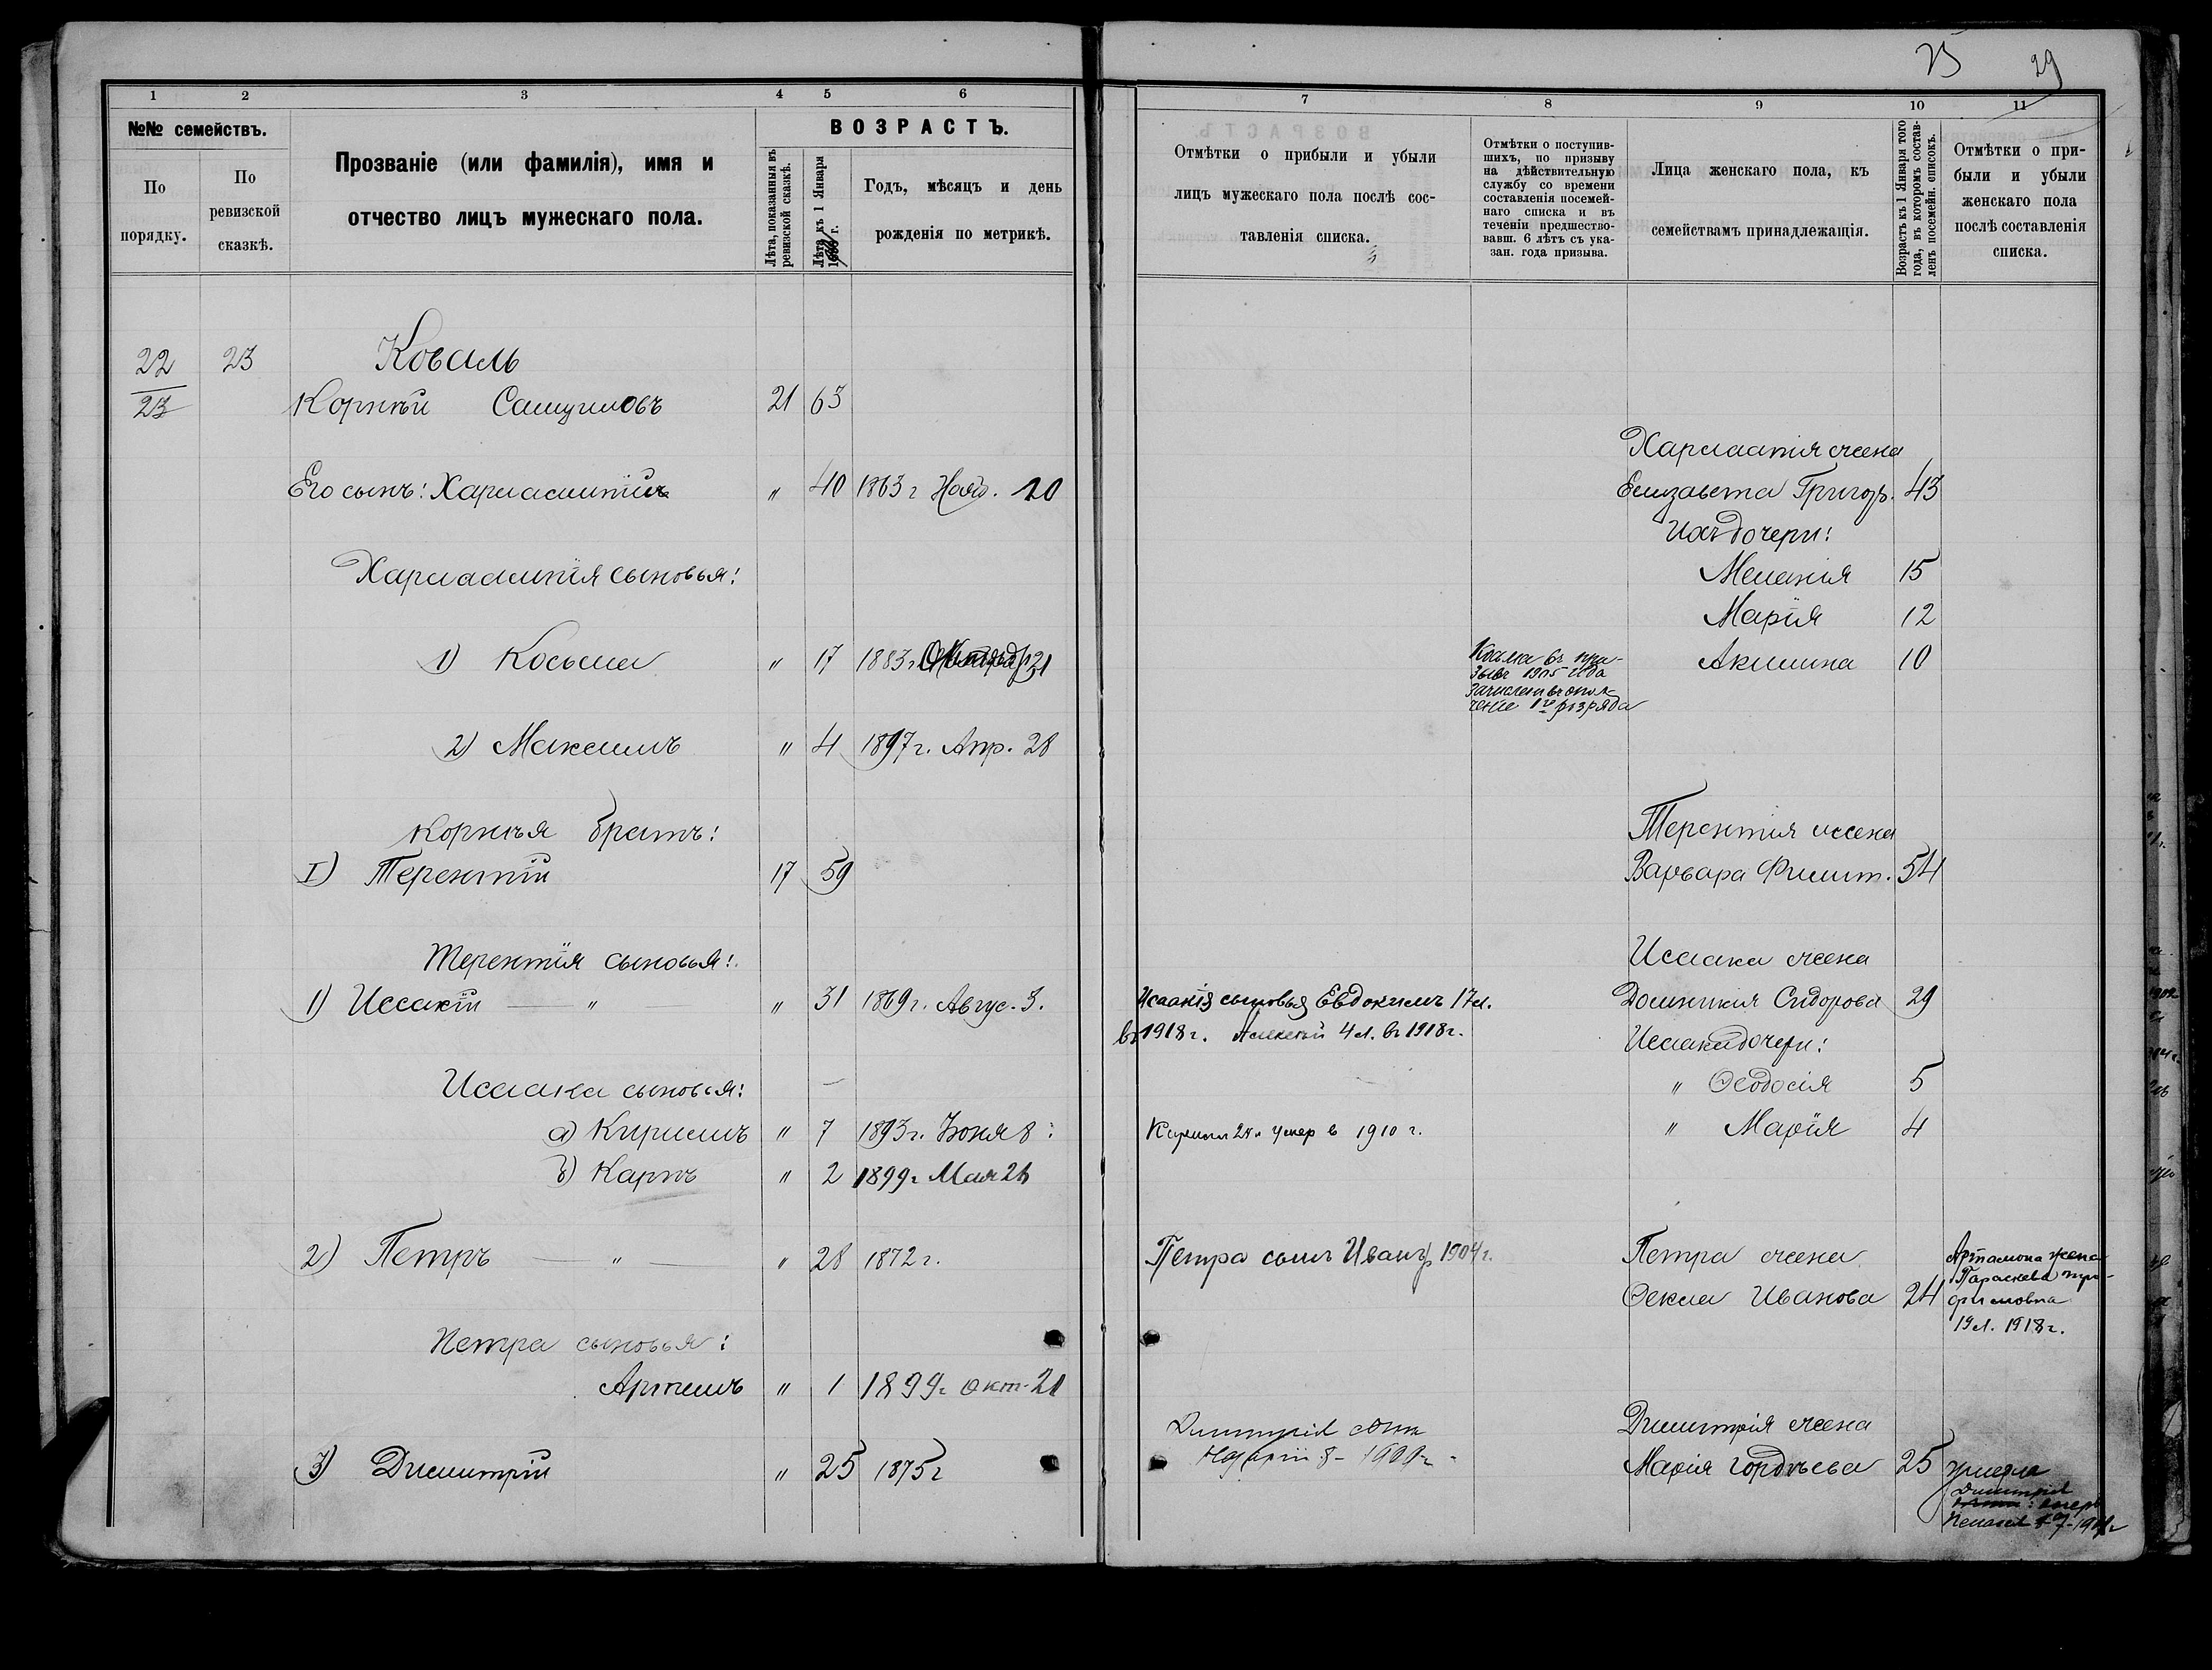 25 29
1 2 3 4 5 6
№№ семействъ.
По порядку.
По ревизской сказкѣ.
Прозваніе (или фамилія), имя и
отчество лицъ мужескаго пола.
ВОЗРАСТЪ.
Лѣта, показанныя въ ревизской сказкѣ.
Лѣта къ 1 Января г.
Годъ, мѣсяцъ и день
рожденія по метрикѣ.
22 23 Коваль
23 Корнѣй 21 63
Его сынъ: Харлампій " 40 1863 г Нояб. 20
Харлампія сыновья:
1) Косьма " 17 1883 г. 21
2) Максимъ " 4 1897 г. Апр. 28
Корнѣя братъ:
I) Терентій 17 59
Терентія сыновья:
1) Исакій — " — " 31 1869 г. Авгус. 3.
Исаака сыновья: —
а) Кирилъ " 7 1893 г. Іюня 8
б) Карпъ " 2 1899 г. Мая 26
2) Петръ — " — " 28 1872 г.
Петра сыновья:
Артемъ " 1 1899 г. Окт. 21
3) Димитрій " 25 1875 г
7 8 9 10 11
Отмѣтки о прибыли и убыли
лицъ мужескаго пола послѣ сос-
тавленія списка.
Отмѣтки о поступив-
шихъ, по призыву
на дѣйствительную
службу со времени
составленія посемей-
наго списка и въ
теченіи предшество-
вавш. 6 лѣтъ съ ука-
зан. года призыва.
Лица женскаго пола, къ
семействамъ принадлежащія.
Возрастъ къ 1 Января того
года, въ которомъ состав-
ленъ посемейн. списокъ.
Отмѣтки о при-
были и убыли
женскаго пола
послѣ составленія
списка.
Харлампія жена
Елизавета Григор. 43
Ихъ дочери:
Меланія 15
Марія 12
Косма въ при-
зывъ 1905 года
зачисленъ въ опол-
ченіе 1го разряда
Акилина 10
Терентія жена
Варвара Филип. 54
Исаака жена
Исаакія сыновья Евдокимъ 17 л.
въ 1918 г. Алексѣй 4 л. въ 1918 г.
Домникія Сидорова 29
Исаака дочери:
" Ѳеодосія 5
Кирилл умер в 1910 г.
" Марія 4
Петра сынъ Иванъ 1904 г.
Петра жена
Ѳекла Иванова 24
Артамона жена
Параскева Тро-
фимовна
19 л. 1918 г.
Димитрія сынъ
Назарій 8 - 1900 г.
Димитрія жена
Марія Гордѣева 25 умерла
Димитрія